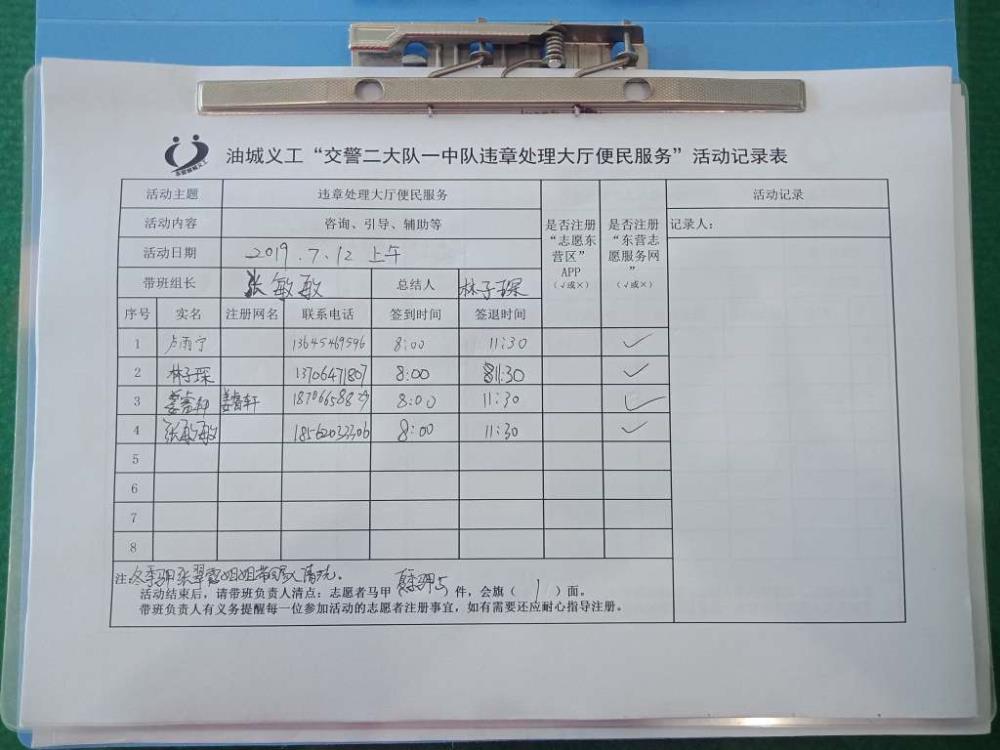 油城义工“交警二大队一中队违章处理大厅便民服务”活动记录表
活动主题 违章处理大厅便民服务 是否注册“志愿东营区”APP（√或×） 是否注册“东营志愿服务网”（√或×） 活动记录
活动内容 咨询、引导、辅助等 记录人：
活动日期 2019.7.12 上午
带班组长 张敏敏 总结人 林子琛
序号 实名 注册网名 联系电话 签到时间 签退时间
1 卢雨宁 13645469596 8:00 11:30 ✓
2 林子琛 13706471807 8:00 11:30 ✓
3 8:00 11:30 ✓
4 张敏敏 18562033306 8:00 11:30 ✓
5
6
7
8
注：冬季
活动结束后，请带班负责人清点：志愿者马甲 5 件，会旗（ 1 ）面。
带班负责人有义务提醒每一位参加活动的志愿者注册事宜，如有需要还应耐心指导注册。